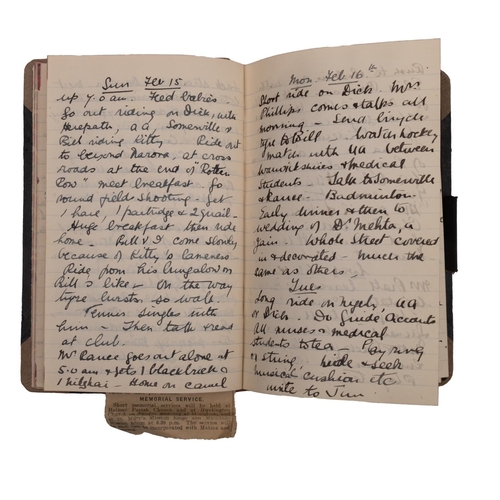 Sun Feb 15
up 7.0 am. Feed babies.
Go out riding on Dick, with
Herepath, AA, Somerville &
Bill riding Kitty Ride out
to beyond Narora, at cross
roads at the end of "Rotten
Row" meet breakfast. Go
round fields shooting. Get
1 hare, 1 partridge & 2 quail.
Huge breakfast then ride
home. Bill & I come slowly,
because of Kitty's lameness
Ride from his bungalow on
Bill's bike - On the way
tyre bursts so walk.
Tennis singles with
him - Then talk & read
at club.
Mr Rance goes out alone at
5.0 am & gets 1 blackbuck &
1 nilghai - Home on camel
MEMORIAL SERVICE.
Mon Feb 16th
Short ride on Dick. Mrs
Phillips comes & talks all
morning - Send bicycle
tyre to Bill Watch hockey
match with AA between
Warwickshires & medical
students Talk to Somerville
& Rance. Badminton.
Early dinner & then to
wedding of Dr Mehta, a
Jain Whole street covered
in & decorated - Much the
same as others
Tues
Long ride on AA
on Dick. Do Guides' Accounts
All nurses & medical
students to tea - Play ring
on string, hide & seek
musical cushion etc
write to Jim.